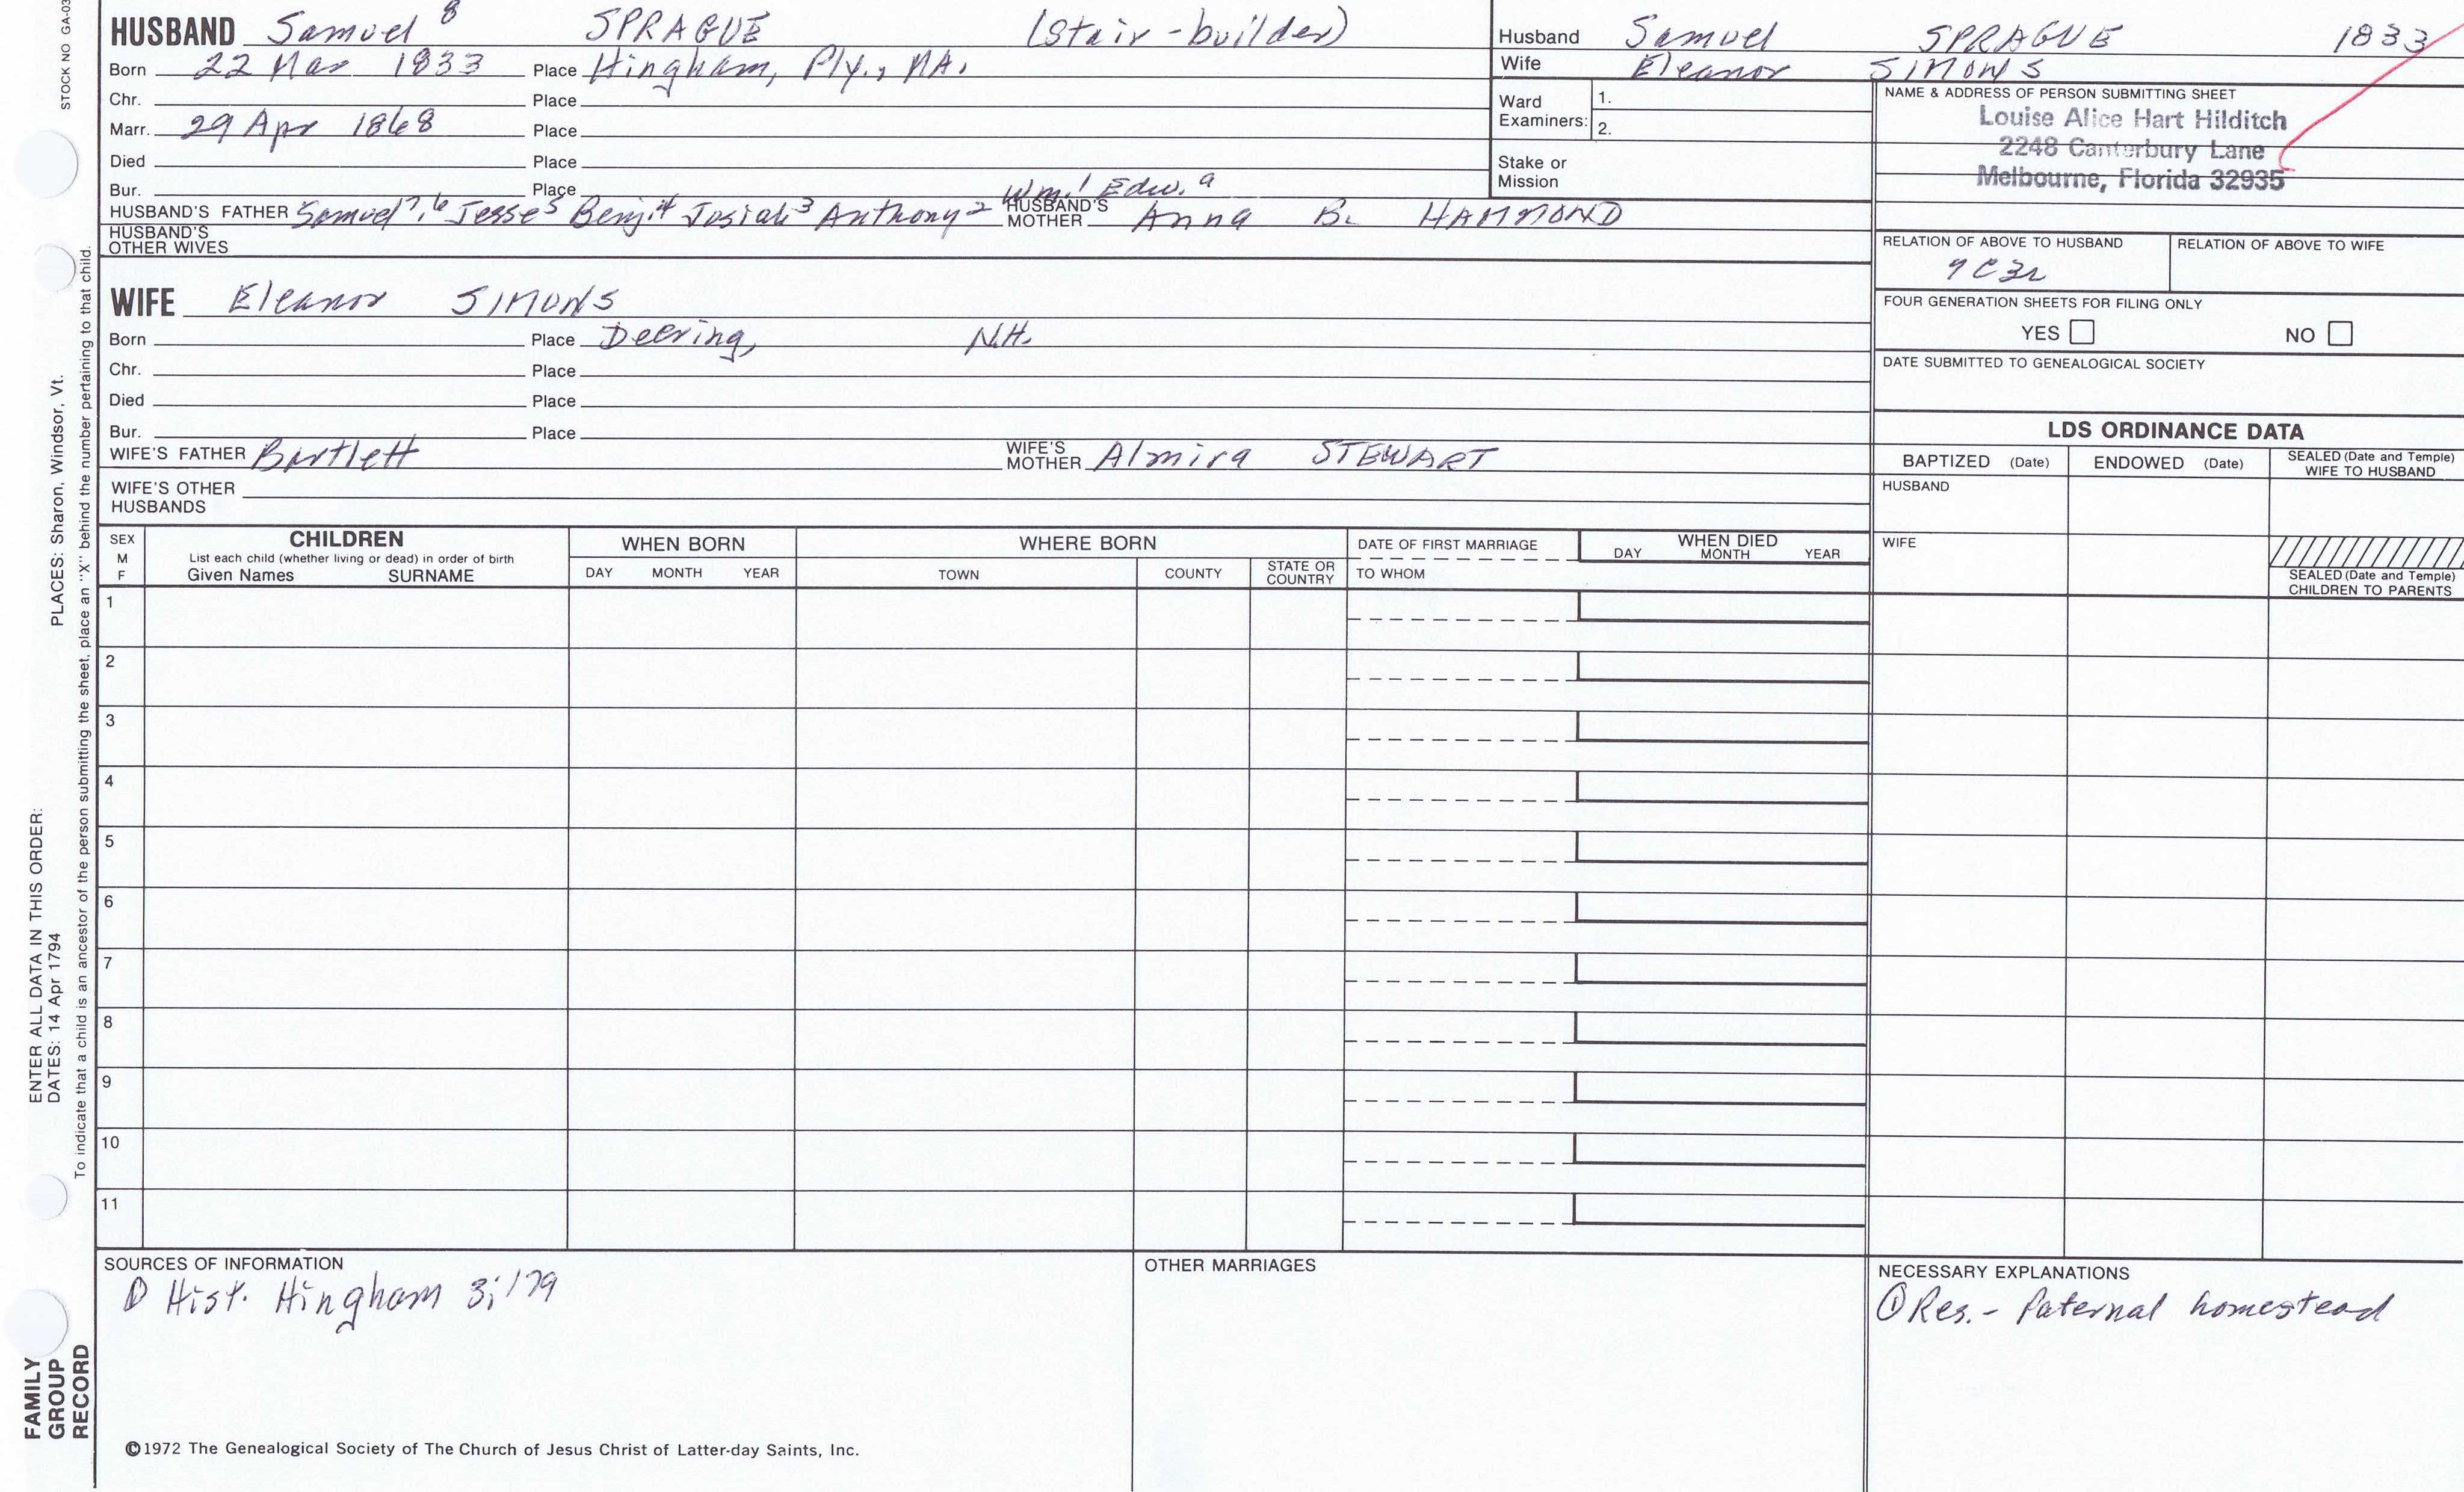 STOCK NO GA-03
HUSBAND Samuel 8 SPRAGUE (Stair-builder)
Born 22 Mar 1833 Place Hingham, Ply., MA.
Chr. Place
Marr. 29 Apr 1868 Place
Died Place
Bur. Place
Wm.1 Edw. a
HUSBAND'S FATHER Samuel7,6 Jesse5 Benj.4 Josiah3 Anthony2 HUSBAND'S MOTHER Anna B. HAMMOND
HUSBAND'S OTHER WIVES
Husband Samuel SPRAGUE 1833
Wife Eleanor SIMONS
Ward Examiners: 1.
2.
Stake or Mission
NAME & ADDRESS OF PERSON SUBMITTING SHEET
Louise Alice Hart Hilditch
2248 Canterbury Lane
Melbourne, Florida 32935
RELATION OF ABOVE TO HUSBAND RELATION OF ABOVE TO WIFE
9C3R
FOUR GENERATION SHEETS FOR FILING ONLY
YES NO
DATE SUBMITTED TO GENEALOGICAL SOCIETY
WIFE Eleanor SIMONS
Born Place Deering, N.H.
Chr. Place
Died Place
Bur. Place
WIFE'S FATHER Bartlett WIFE'S MOTHER Almira STEWART
WIFE'S OTHER HUSBANDS
LDS ORDINANCE DATA
BAPTIZED (Date) ENDOWED (Date) SEALED (Date and Temple) WIFE TO HUSBAND
HUSBAND
WIFE
SEALED (Date and Temple) CHILDREN TO PARENTS
SEX M F
CHILDREN
List each child (whether living or dead) in order of birth
Given Names SURNAME
WHEN BORN
DAY MONTH YEAR
WHERE BORN
TOWN COUNTY STATE OR COUNTRY
DATE OF FIRST MARRIAGE
TO WHOM
WHEN DIED
DAY MONTH YEAR
1
2
3
4
5
6
7
8
9
10
11
SOURCES OF INFORMATION
① Hist. Hingham 3;179
OTHER MARRIAGES
NECESSARY EXPLANATIONS
① Res. - Paternal homestead
©1972 The Genealogical Society of The Church of Jesus Christ of Latter-day Saints, Inc.
FAMILY
GROUP
RECORD
ENTER ALL DATA IN THIS ORDER:
DATES: 14 Apr 1794 PLACES: Sharon, Windsor, Vt.
To indicate that a child is an ancestor of the person submitting the sheet, place an "X" behind the number pertaining to that child.